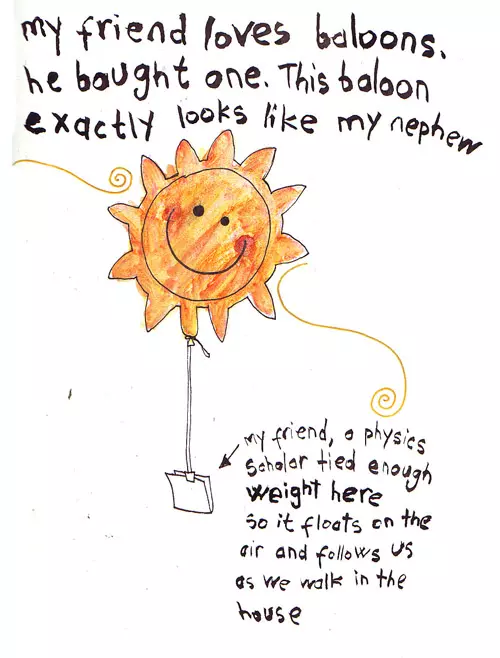 my friend loves baloons.
he bought one. This baloon
exactly looks like my nephew
my friend, a physics
scholar tied enough
weight here
so it floats on the
air and follows us
as we walk in the
house